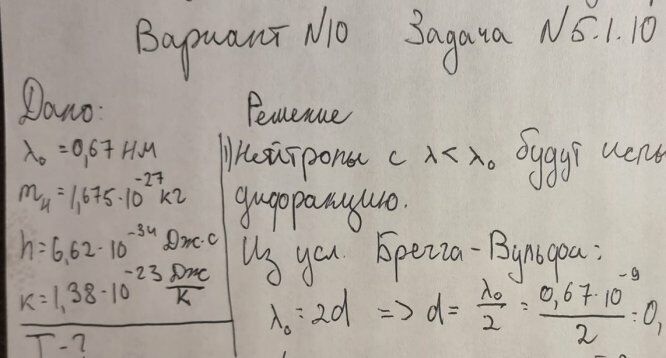 Вариант N10 Задача N5.1.10
Дано:
λ₀ = 0,67 нм
mн = 1,675·10⁻²⁷ кг
h = 6,62·10⁻³⁴ Дж·с
к = 1,38·10⁻²³ Дж/К
T - ?
Решение
1) Нейтроны с λ < λ₀ будут испы
дифракцию.
Из усл. Брегга-Вульфа:
λ₀ = 2d => d = λ₀/2 = 0,67·10⁻⁹/2 = 0,